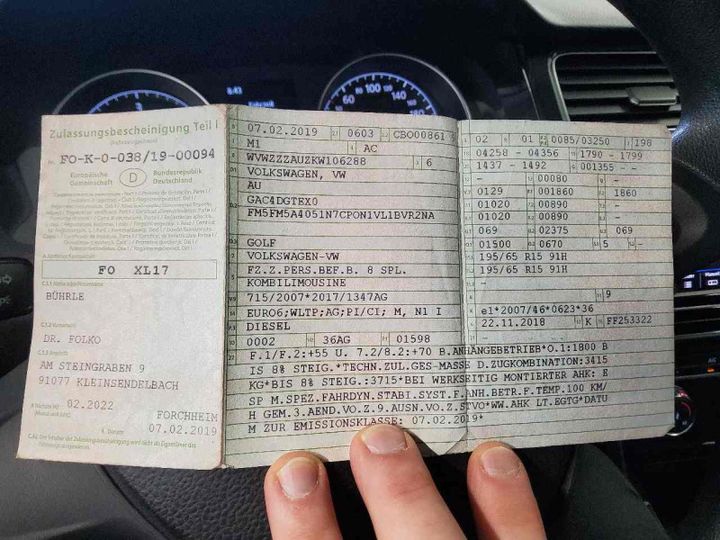 Zulassungsbescheinigung Teil I
Nr. FO-K-0-038/19-00094
Europäische Gemeinschaft D Bundesrepublik Deutschland
FO XL17
BÜHRLE
DR. FOLKO
AM STEINGRABEN 9
91077 KLEINSENDELBACH
02.2022
FORCHHEIM
07.02.2019
07.02.2019 0603 CBO00861
M1 AC
WVWZZZAUZKW106288 6
VOLKSWAGEN, VW
AU
GAC4DGTEX0
FM5FM5A4051N7CPON1VL1BVR2NA
GOLF
VOLKSWAGEN-VW
FZ.Z.PERS.BEF.B. 8 SPL.
KOMBILIMOUSINE
715/2007*2017/1347AG
EURO6;WLTP;AG;PI/CI; M, N1 I
DIESEL
0002 36AG 01598
02 01 0085/03250 198
04258 - 04356 1790 - 1799
1437 - 1492 001355 --
- 00080 -
0129 001860 1860
01020 00890 -
01020 00890 -
069 02375 069
01500 0670 5 -
195/65 R15 91H
195/65 R15 91H
-
- 9
e1*2007/46*0623*36
22.11.2018 K FF253322
F.1/F.2:+55 U. 7.2/8.2:+70 B.ANHÄNGEBETRIEB*O.1:1800 B
IS 8% STEIG.*TECHN.ZUL.GES-MASSE D.ZUGKOMBINATION:3415
KG*BIS 8% STEIG.:3715*BEI WERKSEITIG MONTIERTER AHK: E
SP M.SPEZ.FAHRDYN.STABI.SYST.F.ANH.BETR.F.TEMP.100 KM/
H GEM.3.AEND.VO.Z.9.AUSN.VO.Z.STVO*WW.AHK LT.EGTG*DATU
M ZUR EMISSIONSKLASSE: 07.02.2019*